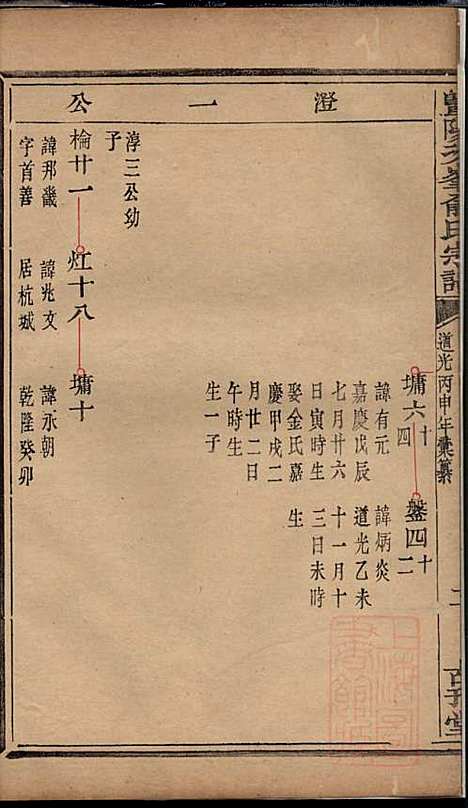 暨陽次峯俞氏宗譜
道光丙申年彙纂
二
百子堂
澄一公
墉六十四
諱有元
嘉慶戊辰
七月廿六
日寅時生
娶金氏嘉
慶甲戌二
月廿二日
午時生
生一子
盤四十二
諱炳炎
道光乙未
十一月十
三日未時
生
淳三公幼
子
棆廿一
諱邦畿
字首善
灴十八
諱兆文
居杭城
墉十
諱永朝
乾隆癸卯